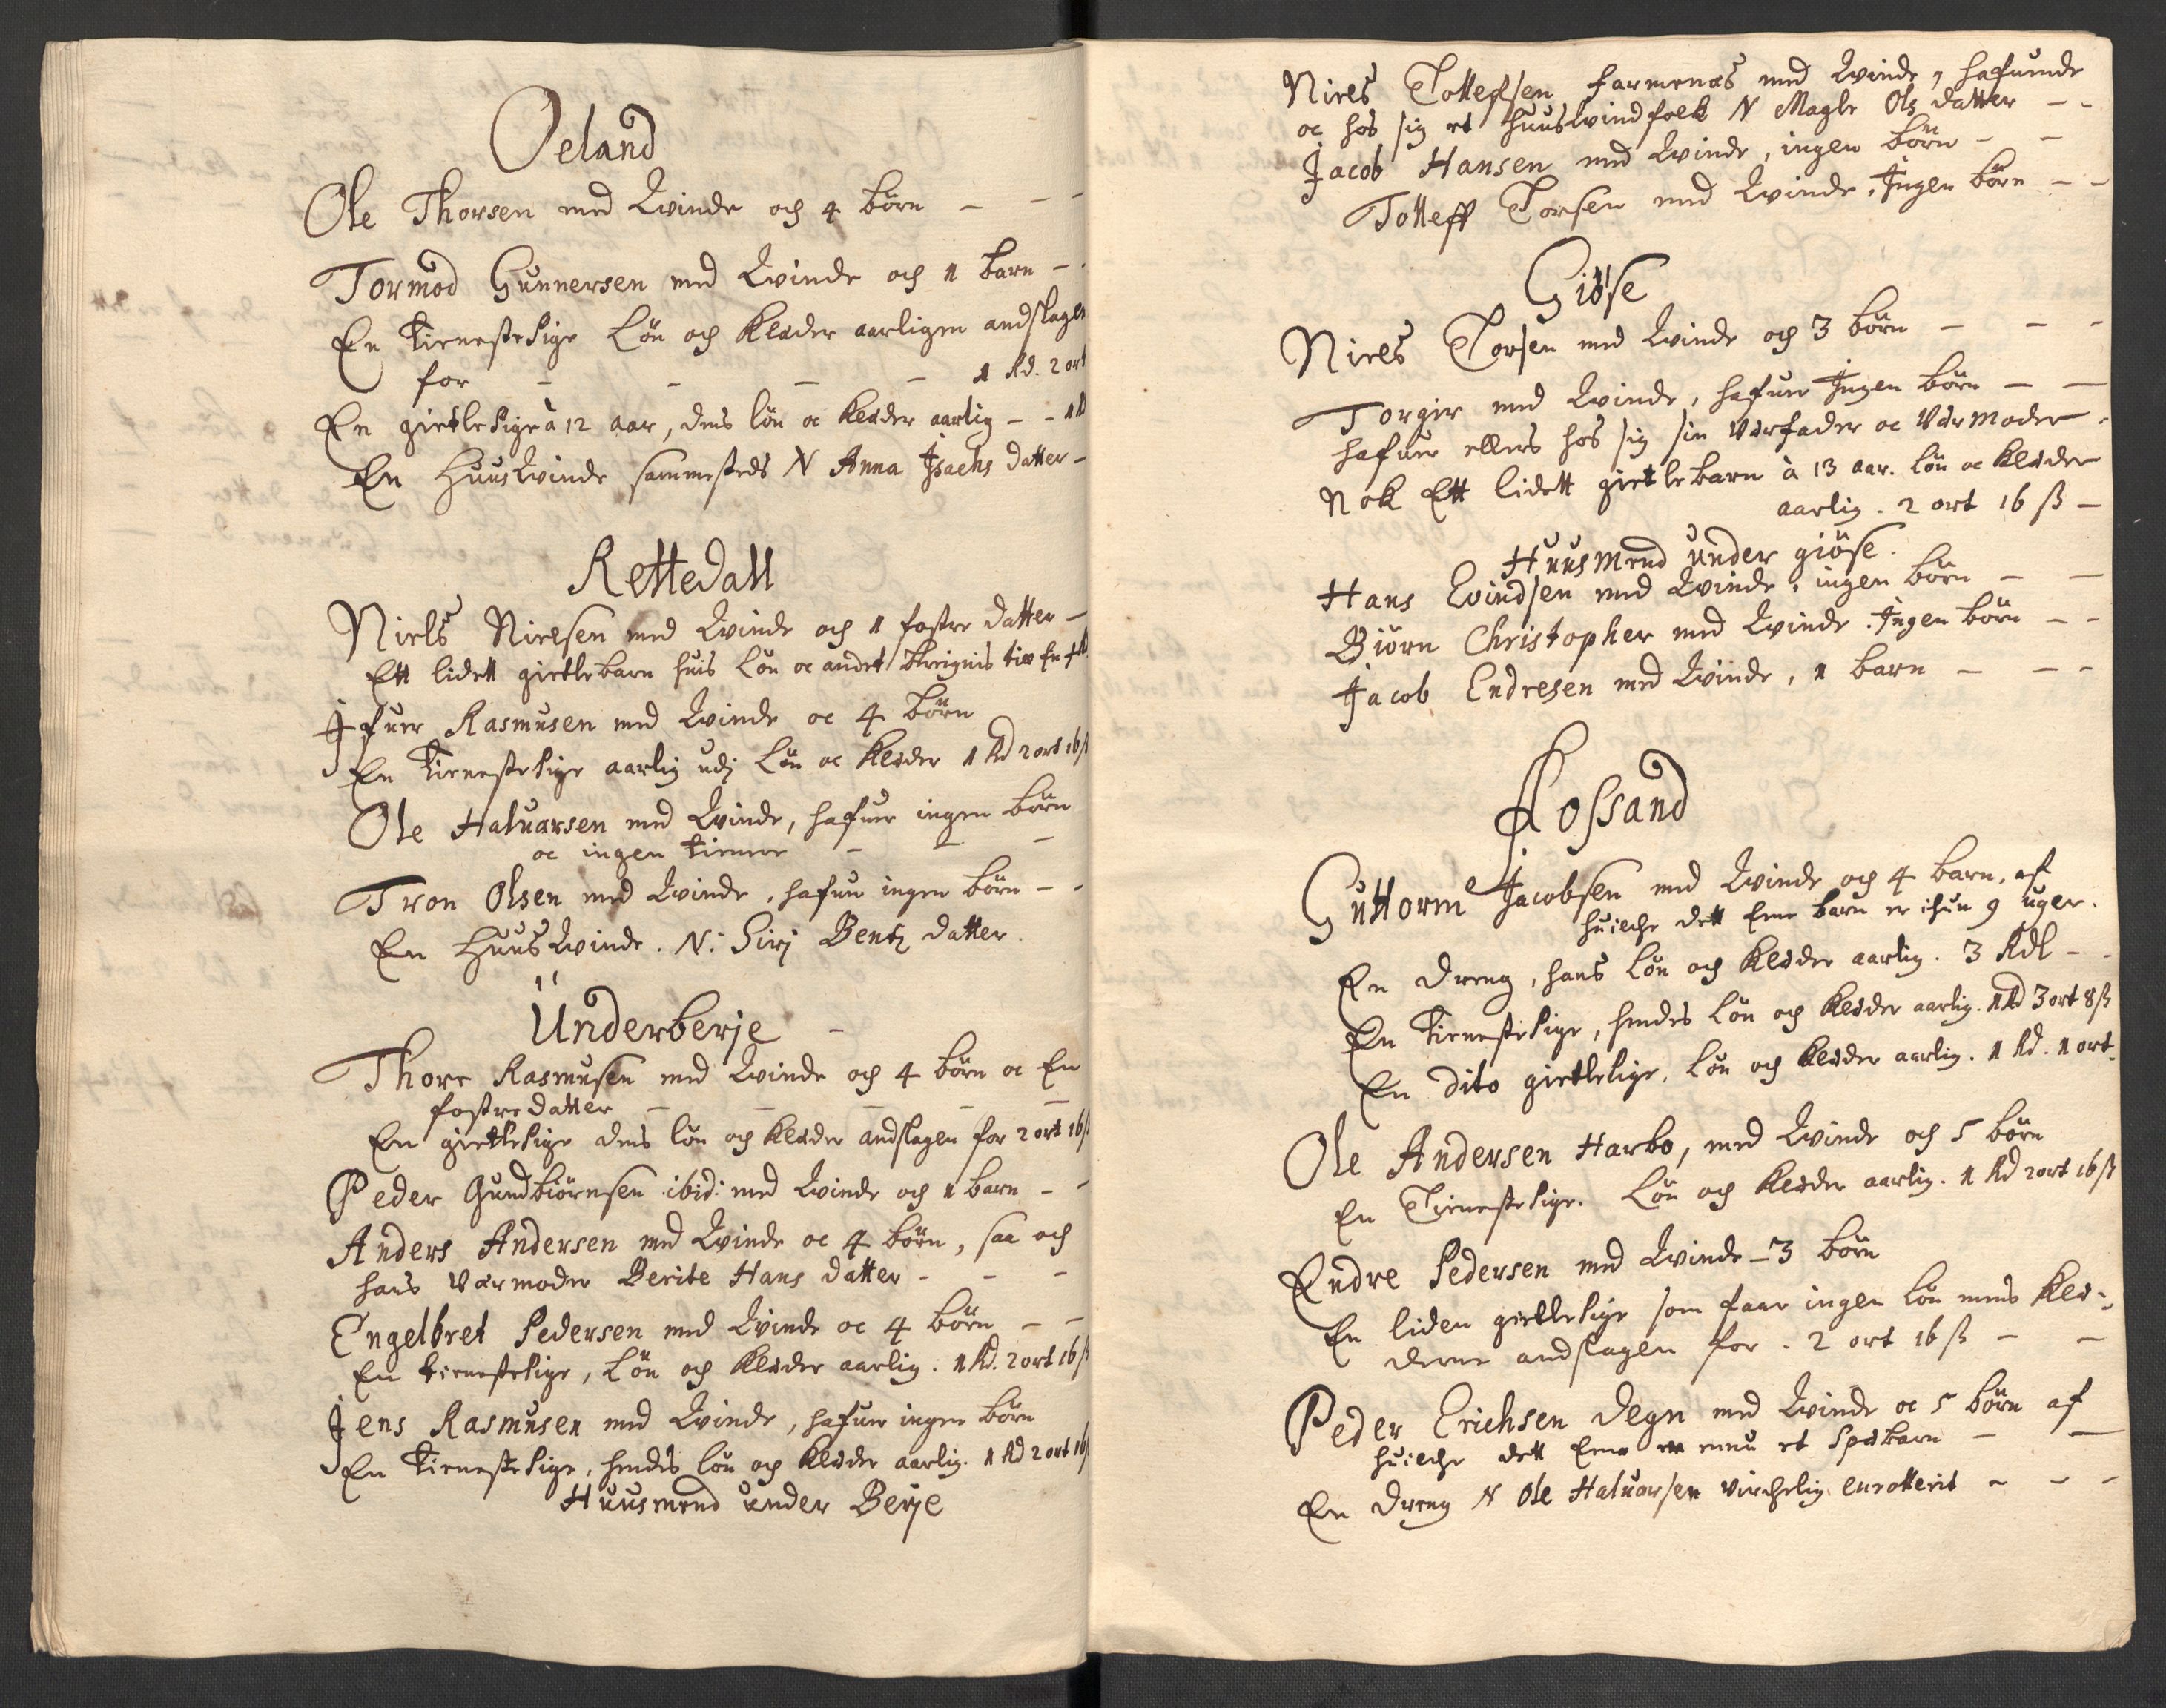 Oeland
Ole Thorsen med Qvinde och 4 börn - - -
Tormod Gunnersen med Qvinde och 1 barn - -
En tienestepige Lön och Kleder aarligen andslagen
for - - - - 1 Rd. 2 ort
En gietlepige à 12 aar, dens lön oc kleder aarlig - - 1 Rd
En Huusqvinde sammesteds N Anna Isachs datter -
Rettedall
Niels Nielsen med Qvinde och 1 fostre datter -
Ett lidett gietlebarn huis Lön oc andet
Ifuer Rasmusen med Qvinde oc 4 börn
En tienestepige aarlig udj Lön oc Kleder 1 Rd 2 ort 16 ß
Ole Haluarsen med Qvinde, hafuer ingen börn
oc ingen tienere - - -
Tron Olsen med Qvinde, hafuer ingen börn - -
En Huusqvinde. N: Sirj Bentz datter.
Underberje -
Thore Rasmusen med Qvinde och 4 börn oc En
fostredatter - - - - -
En gietlepige dens lön och kleder andslagen for 2 ort 16 ß
Peder Gundbiörnsen ibid: med Qvinde och 1 barn - -
Anders Andersen med Qvinde oc 4 börn, saa och
hans Værmoder Berite Hans datter - - -
Engelbret Pedersen med Qvinde oc 4 börn - -
En tienestepige, Lön och kleder aarlig. 1 Rd. 2 ort 16 ß
Jens Rasmusen med Qvinde, hafuer ingen börn
En tienestepige, hendes lön och kleder aarlig. 1 Rd 2 ort 16 ß
Huusmend under Berje
Niels Tollefsen farmenæs med Qvinde, hafuende
oc hos sig et huusqvindfolk N Magle Ols datter - -
Jacob Hansen med Qvinde, ingen börn - -
Tolleff Torsen med Qvinde, Ingen börn - -
Giöse
Niels Torsen med Qvinde och 3 börn - - -
Torgir med Qvinde, hafuer Ingen börn - -
hafuer ellers hos sig sin Værfader oc Værmoder -
Nok Ett lidett gietlebarn à 13 aar. lön oc kleder
aarlig. 2 ort 16 ß -
Huusmend under giöse.
Hans Evindsen med Qvinde, ingen börn - -
Biörn Christopher med Qvinde. Ingen börn - -
Jacob Endresen med Qvinde, 1 barn - - -
Fossand
Guttorm Jacobsen med Qvinde och 4 barn, af
huilche dett Ene barn er ichun 9 uger.
En dreng, hans lön och kleder aarlig. 3 Rdl - -
En tienestepige, hendes lön och kleder aarlig. 1 Rd 3 ort 8 ß
En dito gietlepige, Lön och kleder aarlig. 1 Rd. 1 ort.
Ole Andersen Harbo, med Qvinde och 5 börn
En Tienestepige. Lön och kleder aarlig. 1 Rd 2 ort 16 ß
Endre Pedersen med Qvinde - 3 börn
En liden gietlepige som faar ingen lön mens Kle-
derne andslagen for. 2 ort 16 ß - -
Peder Erichsen Degn med Qvinde oc 5 börn af
huilche dett Ene er enu et Spæbarn - -
En dreng N Ole Haluorsen virchelig enrollerit - - -